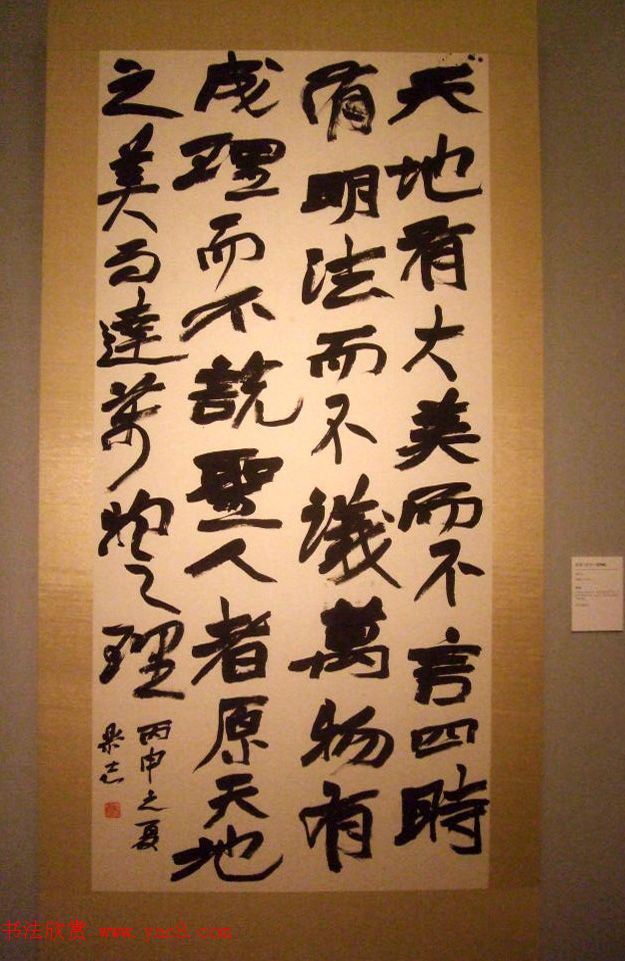 天地有大美而不言四時
有明法而不議萬物有
成理而不説聖人者原天地
之美而達萬物之理
丙申之夏
书法欣赏 www.yac8.com